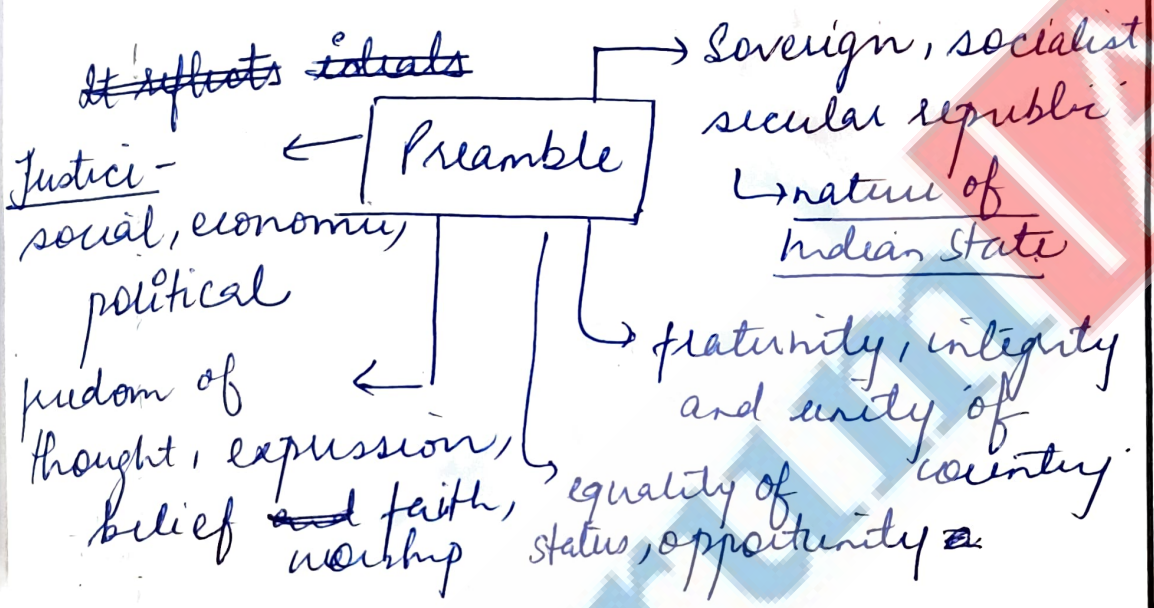 It reflects ideals
Preamble
Soverign, socialist
secular republic
↳nature of
Indian State
Justice -
social, economic,
political
freedom of
thought, expression,
belief and faith,
worship
equality of
status, opportunity
fraternity, integrity
and unity of
country